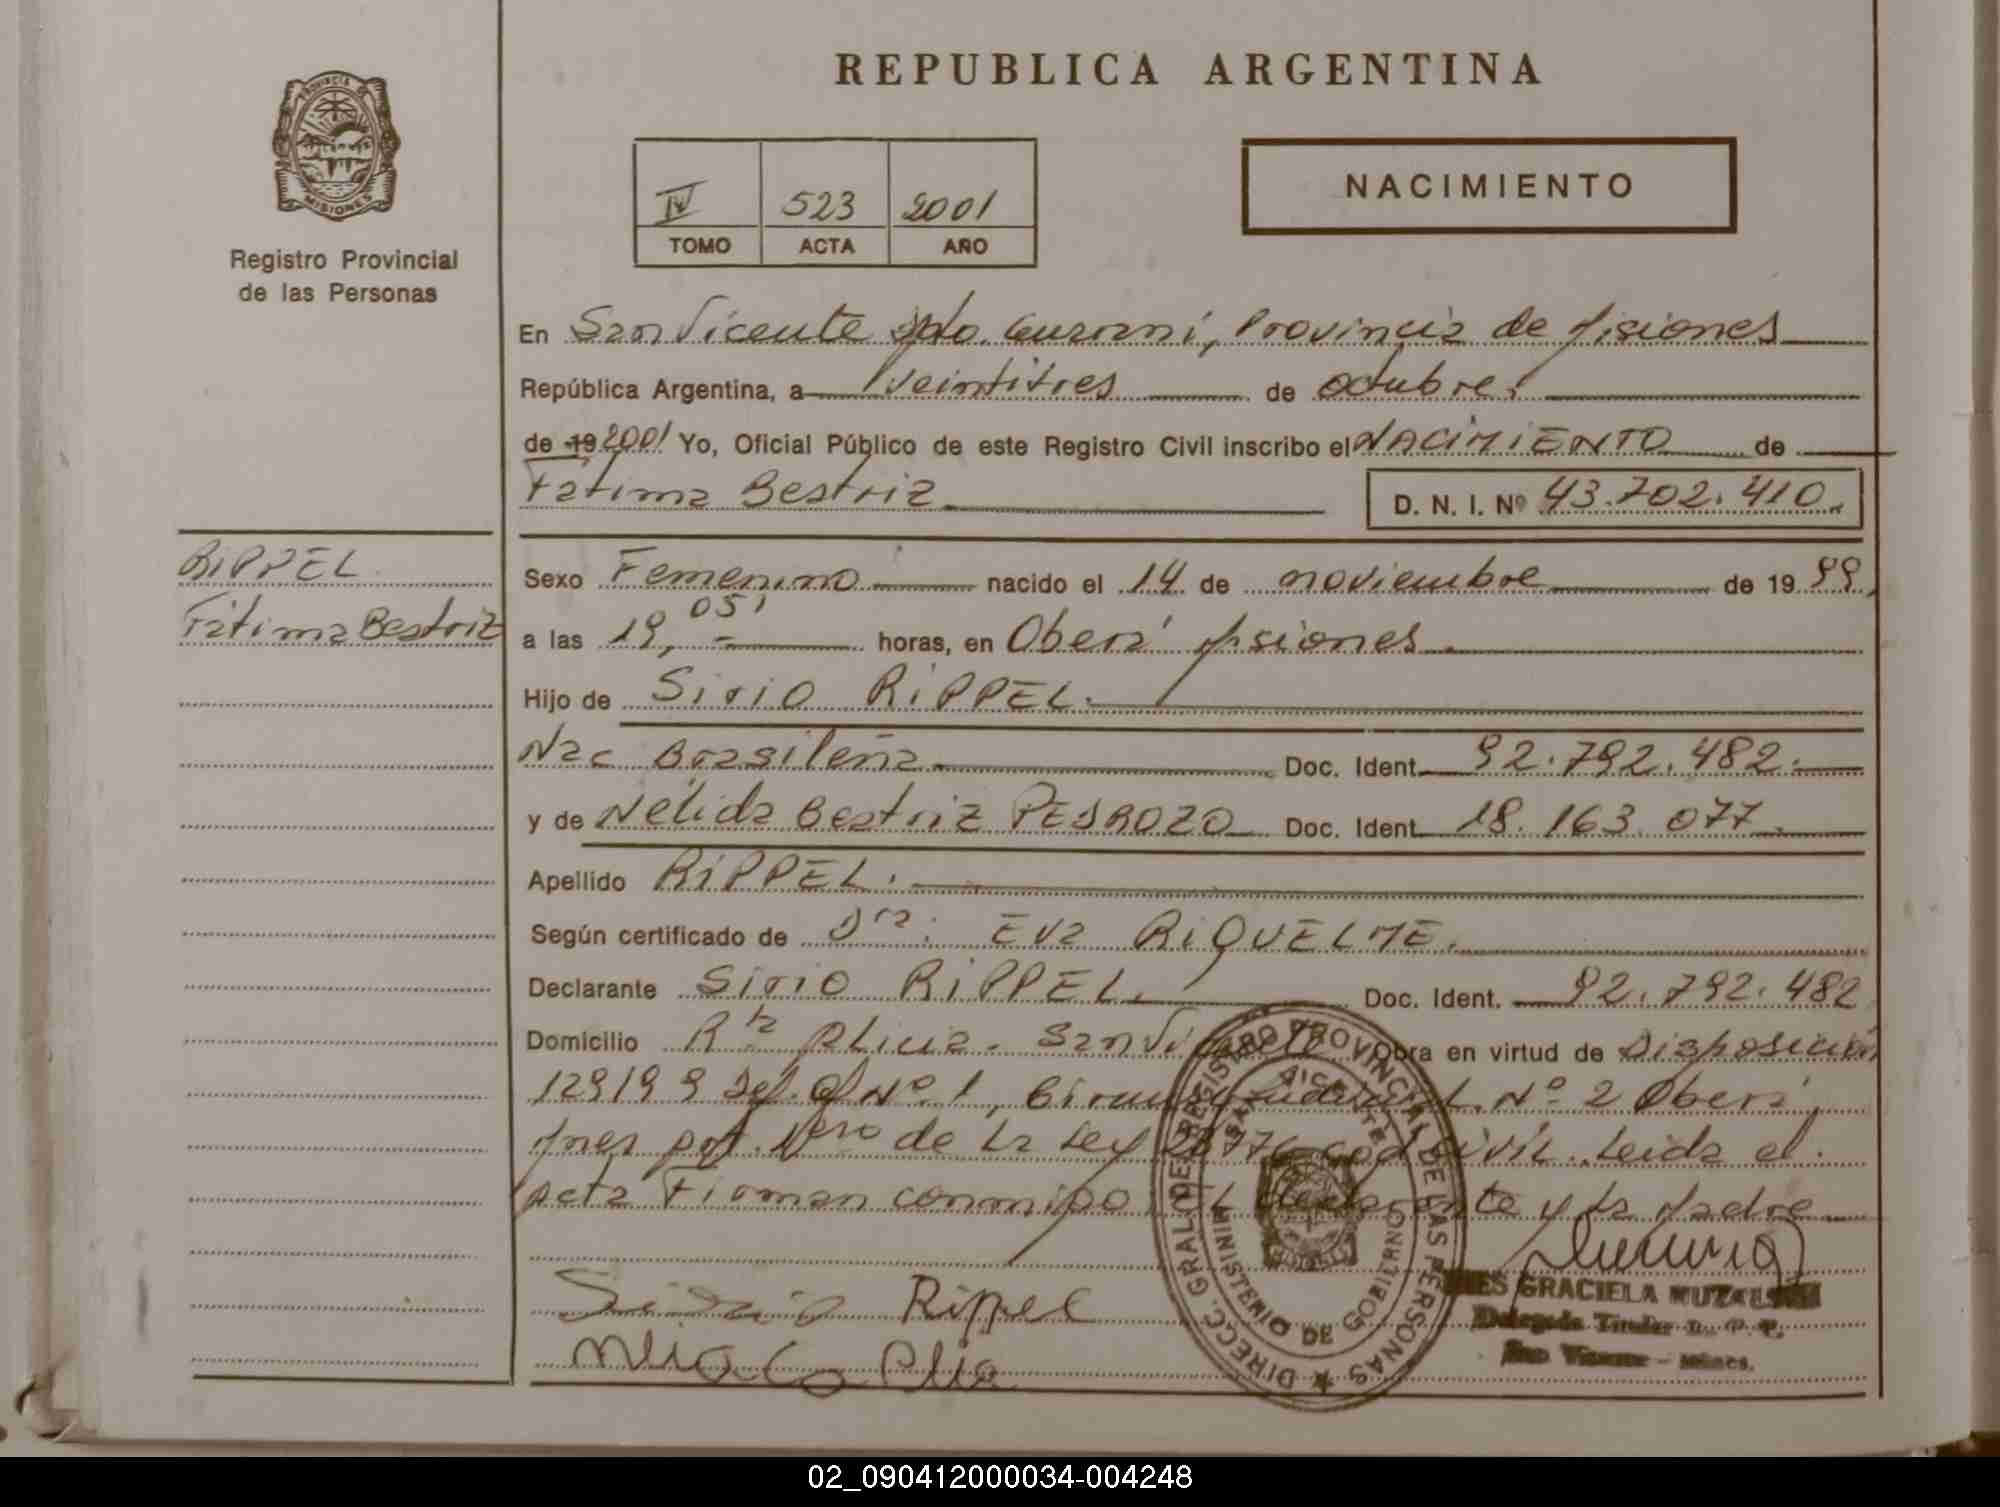 REPUBLICA ARGENTINA
PROVINCIA DE
MISIONES
Registro Provincial
de las Personas
IV 523 2001
TOMO ACTA AÑO
NACIMIENTO
En San Vicente Dpto. Guaraní, Provincia de Misiones
República Argentina, a veintitres de octubre.
de 19 2001 Yo, Oficial Público de este Registro Civil inscribo el NACIMIENTO de
Fátima Beatriz D. N. I. Nº 43.702.410.
RiPPEL
Fátima Beatriz
Sexo Femenino nacido el 14 de noviembre de 19 99.
a las 19,05' horas, en Oberá Misiones.
Hijo de Sirio RiPPEL.
Nac Brasileña Doc. Ident. 92.792.482.
y de Nélida Beatriz PEDROZO Doc. Ident. 18.163.077.
Apellido RiPPEL.
Según certificado de Dra. Eva RiQUELME.
Declarante Sirio RiPPEL. Doc. Ident. 92.792.482
Domicilio Rta Alicia. San Vicente Obra en virtud de Disposición
129/99 Def. Of Nº 1, Nº 2 Oberá,
de la Ley Civil. Leida el
acta Firman conmigo el declarante y la Madre
Rippel
DIRECC. GRAL. DEL REGISTRO PROVINCIAL DE LAS PERSONAS
SAN VICENTE
MINISTERIO DE GOBIERNO
INES GRACIELA
Delegada Titular R. P. P.
San Vicente - Mnes.
02_090412000034-004248